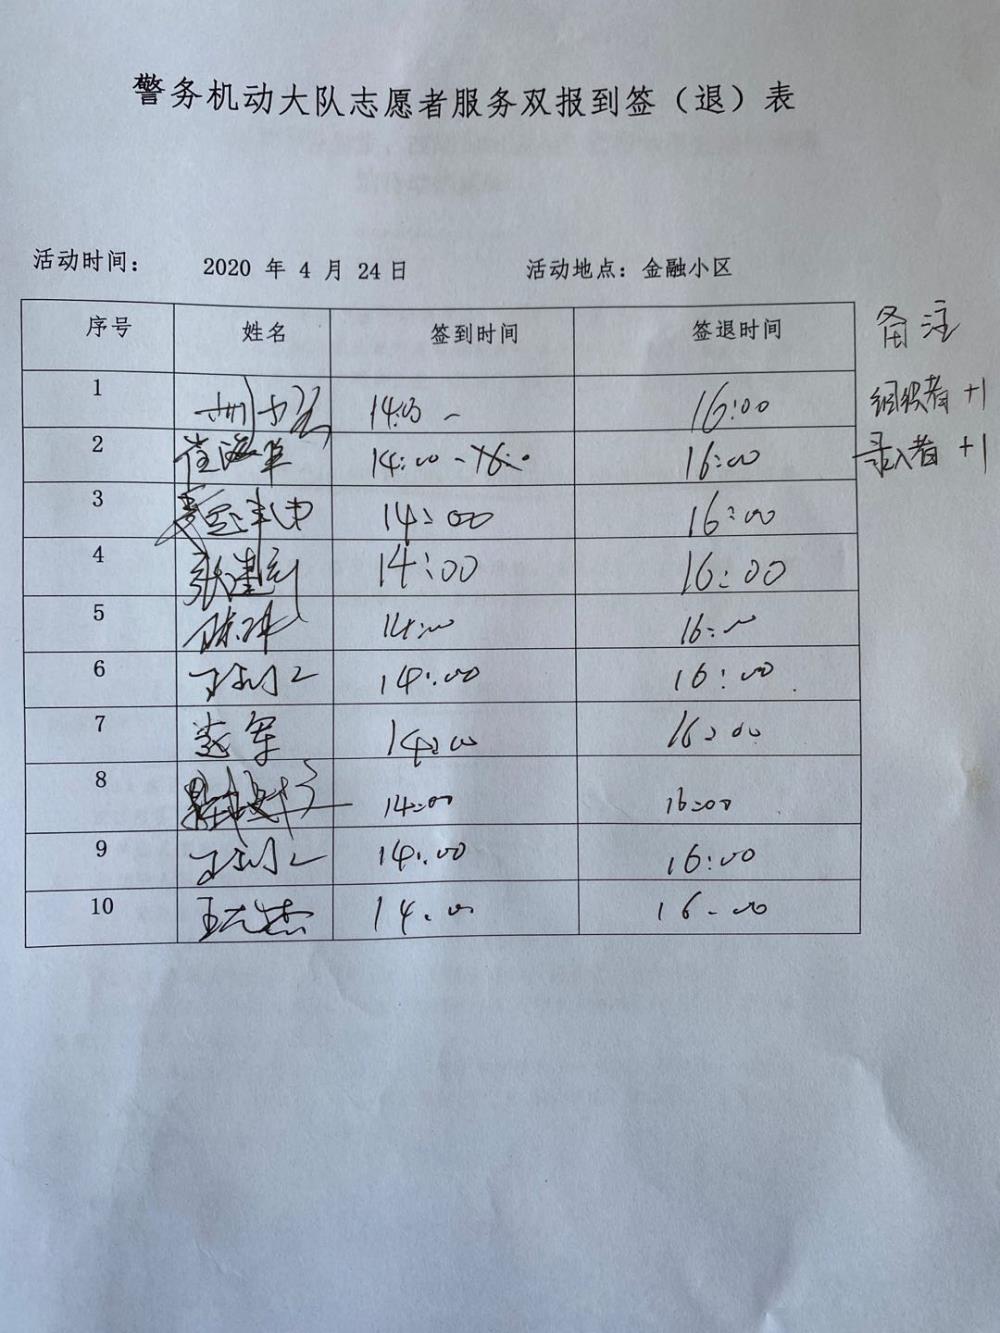 警务机动大队志愿者服务双报到签（退）表
活动时间： 2020 年 4 月 24日 活动地点：金融小区
序号 姓名 签到时间 签退时间 备注
1 14:00 - 16:00 组织者 +1
2 崔海军 14:00 - 16:0 16:00 录入者 +1
3 14:00 16:00
4 张建 14:00 16:00
5 14:00 16:00
6 14:00 16:00
7 赵军 14:00 16:00
8 14:00 16:00
9 14:00 16:00
10 王云杰 14:00 16:00